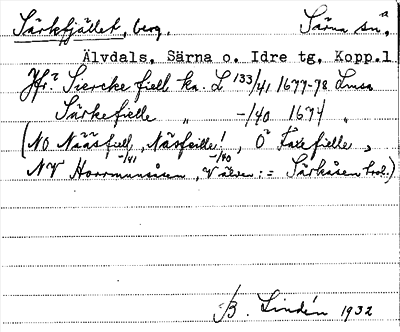 Särkfjället, berg. Särna sn,
Älvdals, Särna o. Idre tg, Kopp.l
Jfr? Siercke fiell ka. L 133/41 1677-78 Lmsa
Särkefielle " -/40 1674 "
(NO Nääsfiell, Näsfeille!, O Faxefielle,
NV Horrmunsåsen -/41, V älven -/40 := Särkåsen
B. Lindén 1932